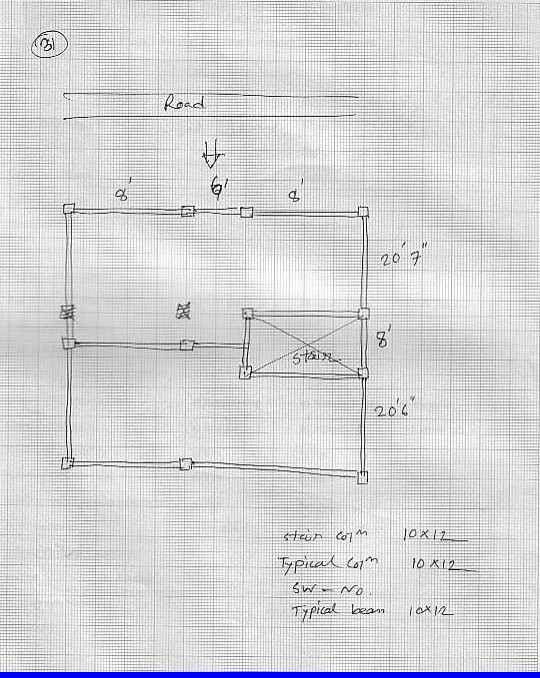 31
Road
8' 8'
20' 7"
8'
stair
20' 6"
stair colm 10×12
Typical colm 10×12
SW - No.
Typical beam 10×12